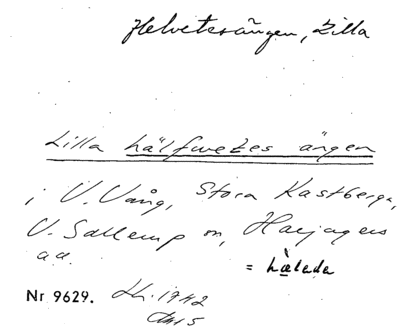 Helvetesängen, Lilla
Lilla hälfwetes ängen
i V. Vång, Stora Kastberga,
V. Sallerup sn, Harjagers
= hälada
Nr 9629. Lh. 1942